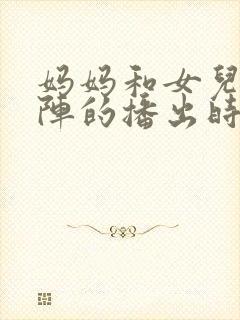 妈妈和女兒
陣的播出時